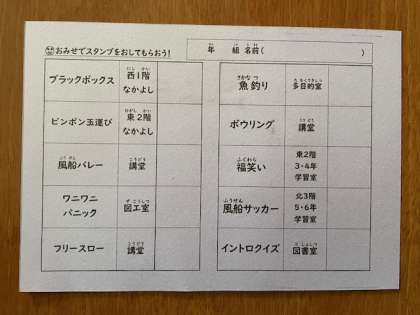 おみせでスタンプをおしてもらおう!
年 組 名前( )
ブラックボックス
西1階
なかよし
ピンポン玉運び
東2階
なかよし
風船バレー
講堂
ワニワニ
パニック
図工室
フリースロー
講堂
魚釣り
多目的室
ボウリング
講堂
福笑い
東2階
3・4年
学習室
風船サッカー
北3階
5・6年
学習室
イントロクイズ
図書室